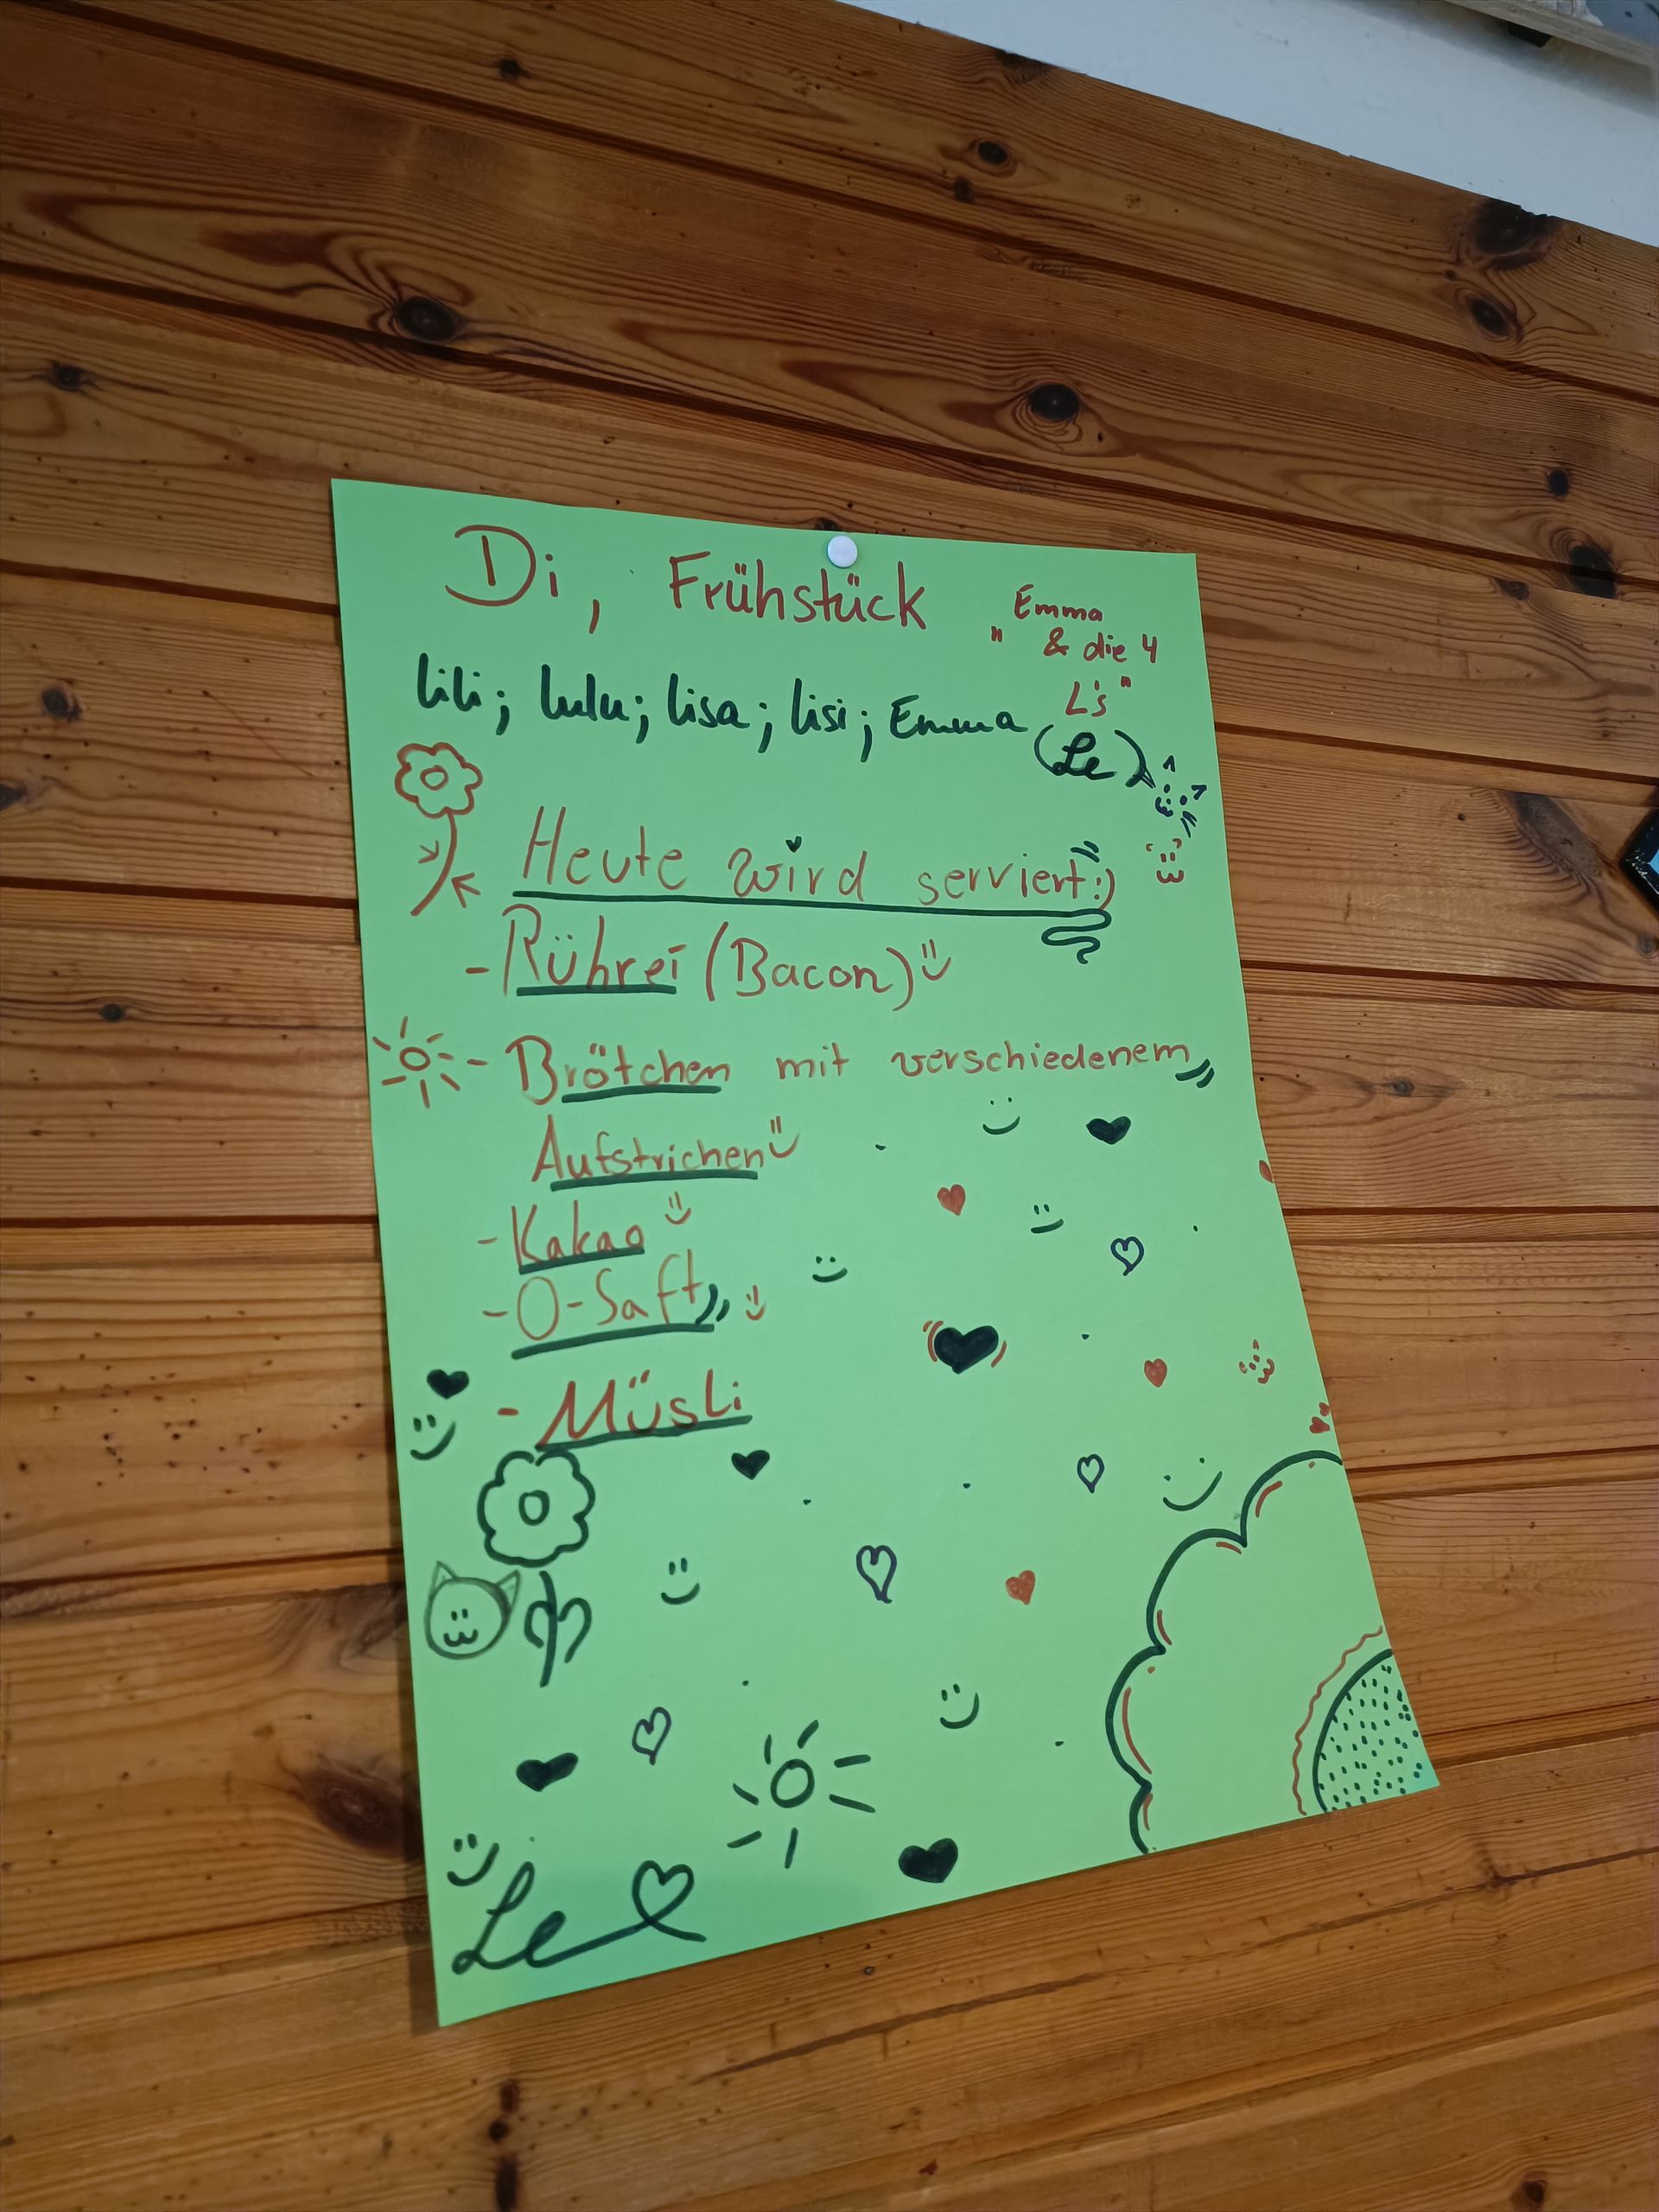 Di, Frühstück
"Emma
& die 4
L's"
Lili; Lulu; Lisa; Lisi; Emma (Le)
Heute wird serviert:)
- Rührei (Bacon)
- Brötchen mit verschiedenem
Aufstrichen
- Kakao
- O-Saft
- Müsli
Le